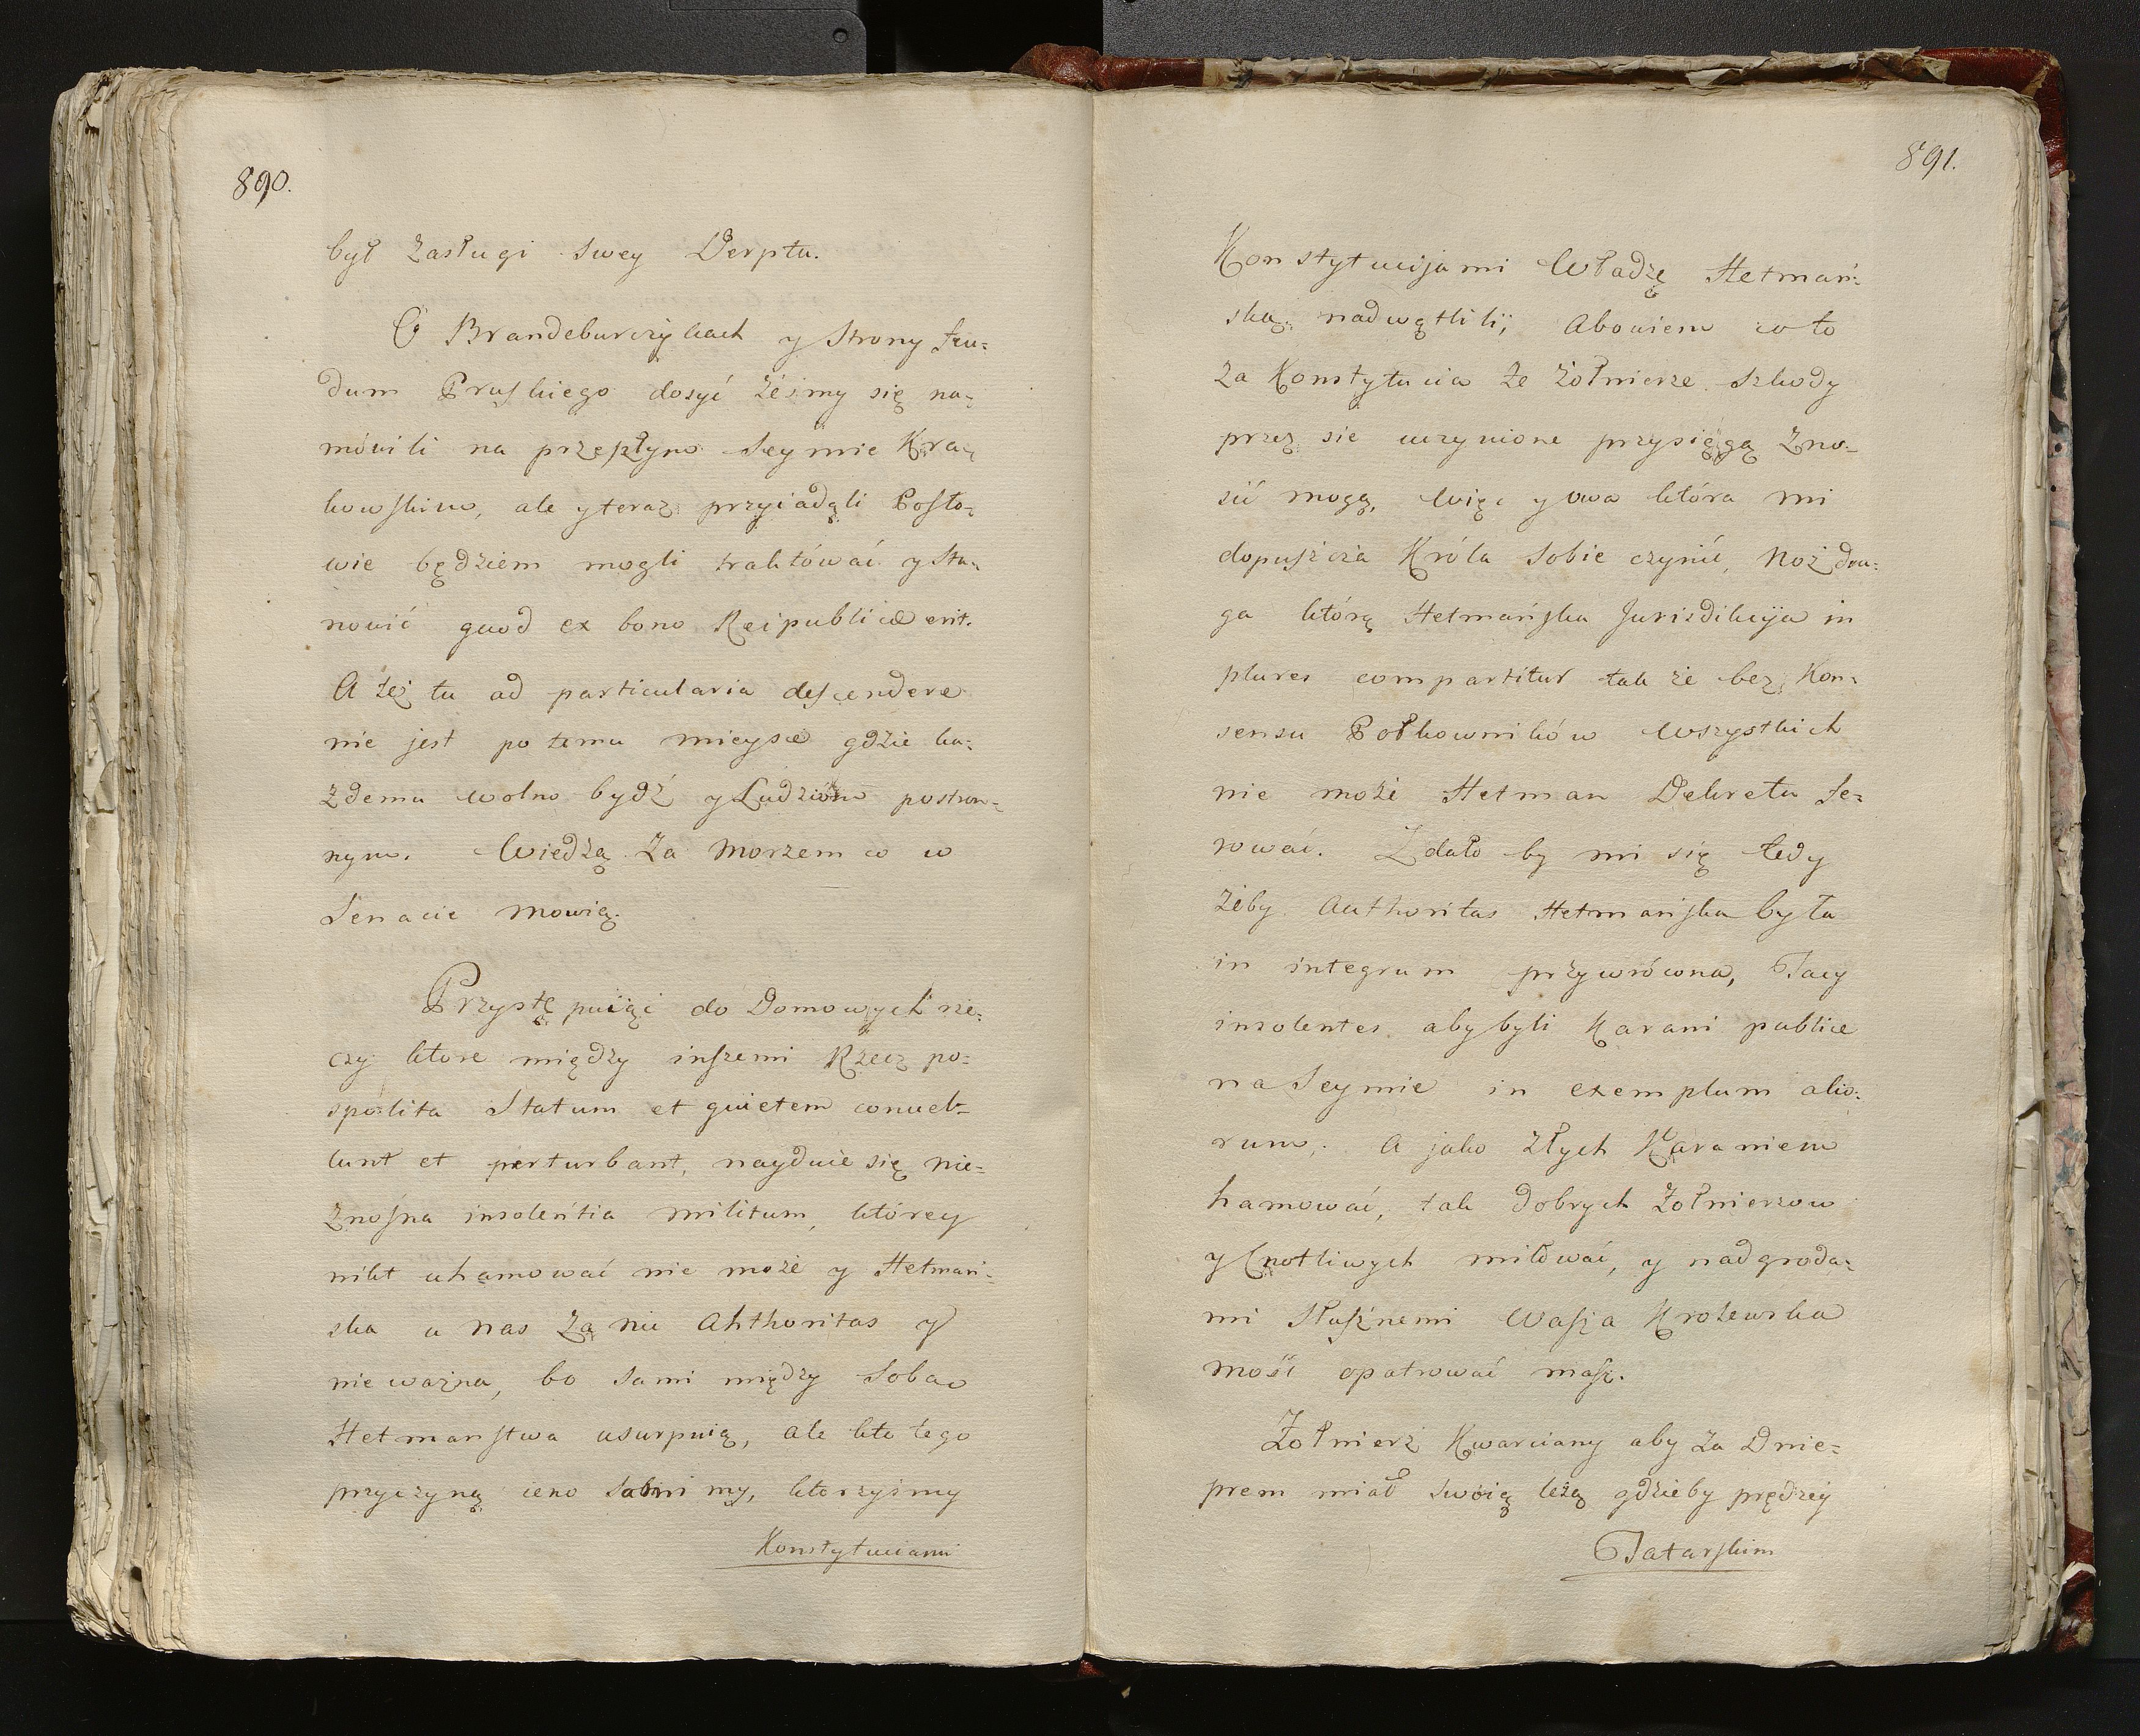 890.
był zasługi swey Derptu.
O Brandeburczykach y strony feu=
dum Pruskiego dosyć żésmy się na=
mówili na przepłym Seymie Kra=
kowskim, ale y teraz przyiadąli Posło=
wie będziem mogli traktówać y sta=
nowić quod ex bono Reipublicæ erit.
A żeż tu ad particularia descendere
nie jest po temu mieysce gdzie ka=
żdemu wolno bydź y Ludziom postron=
nym. Wiedzą za morzem co w
Senacie mowią.
Przystępuiąć do Domowych rze=
czy ktore między inszemi Rzecz po=
spolita Statum et quietem convel=
lunt et perturbant, nayduie się nie=
znośna insolentia militum, którey
nikt uhamować nie może y Hetmań=
ska u nas za nic Ahthoritas y
nie ważna, bo sami między soba
Hetmanstwa usurpuią, ale kto tego
przyczyną ieno sami my, ktorzyśmy
Konstytuciami
891.
Konstytucijami Władzę Hetmań=
ską nadwątlili; Abowiem co to
za Konstytucia że żołnierze szkody
przez sie uczynione przysięgą zno=
sić mogą, Więc y owa która mi
dopuszcza Króla sobie czynić, Noż dru=
ga którą Hetmańska Jurisdikcyja in
plures compartitur tak że bez Kon=
sensu Połkowników wszystkich
nie może Hetman Dekretu fe=
rować. Zdało by mi się tedy
żeby Authoritas Hetmańska była
in integrum przywrócona, Tacy
insolentes aby byli Karani publice
na Seymie in exemplum alio=
rum, A jako złych Karaniem
hamować, tak dobrych Żołnierzow
y Cnotliwych miłować, y nadgroda=
mi słusznemi Wasza Krolewska
mość opatrować masz.
Żołnierz Kwarciany aby za Dnie=
prem miał swoią leżą gdzieby prędzey
Tatarskim